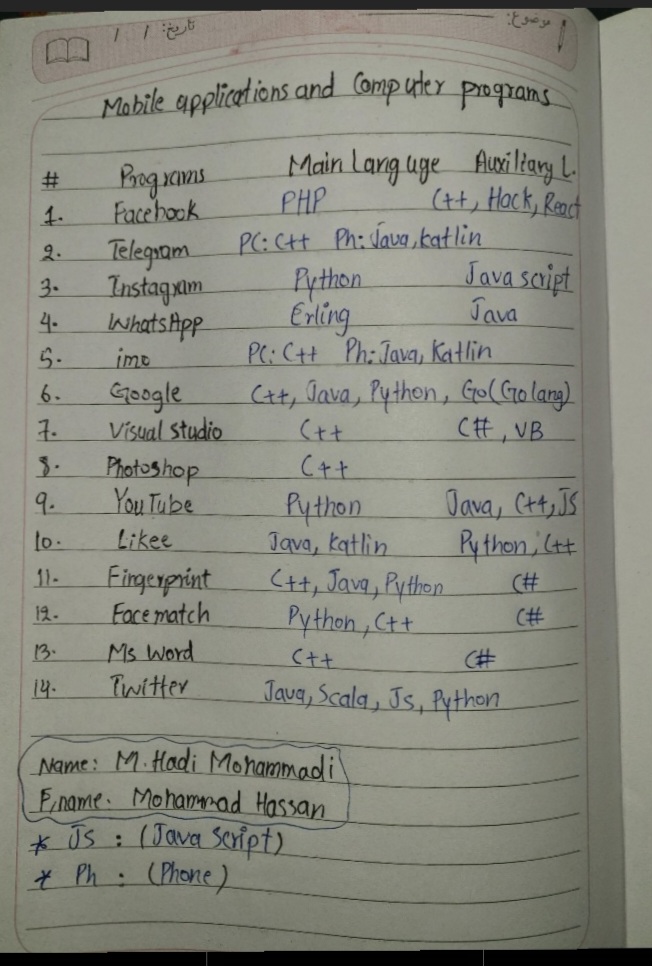 موضوع:
تاریخ: / /
Mobile applications and Computer programs
# Programs Main Languge Auxiliary L.
1. Facebook PHP C++, Hack, React
2. Telegram PC: C++ Ph: Java, katlin
3. Instagram Python Java script
4. WhatsApp Erling Java
5. imo PC: C++ Ph: Java, Katlin
6. Google C++, Java, Python, Go(Go lang)
7. Visual studio C++ C#, VB
8. Photoshop C++
9. YouTube Python Java, C++, JS
10. Likee Java, Katlin Python, C++
11. Fingerprint C++, Java, Python C#
12. Face match Python, C++ C#
13. Ms Word C++ C#
14. Twitter Java, Scala, Js, Python
Name: M. Hadi Mohammadi
F,name. Mohammad Hassan
* JS : (Java Script)
* Ph : (Phone)